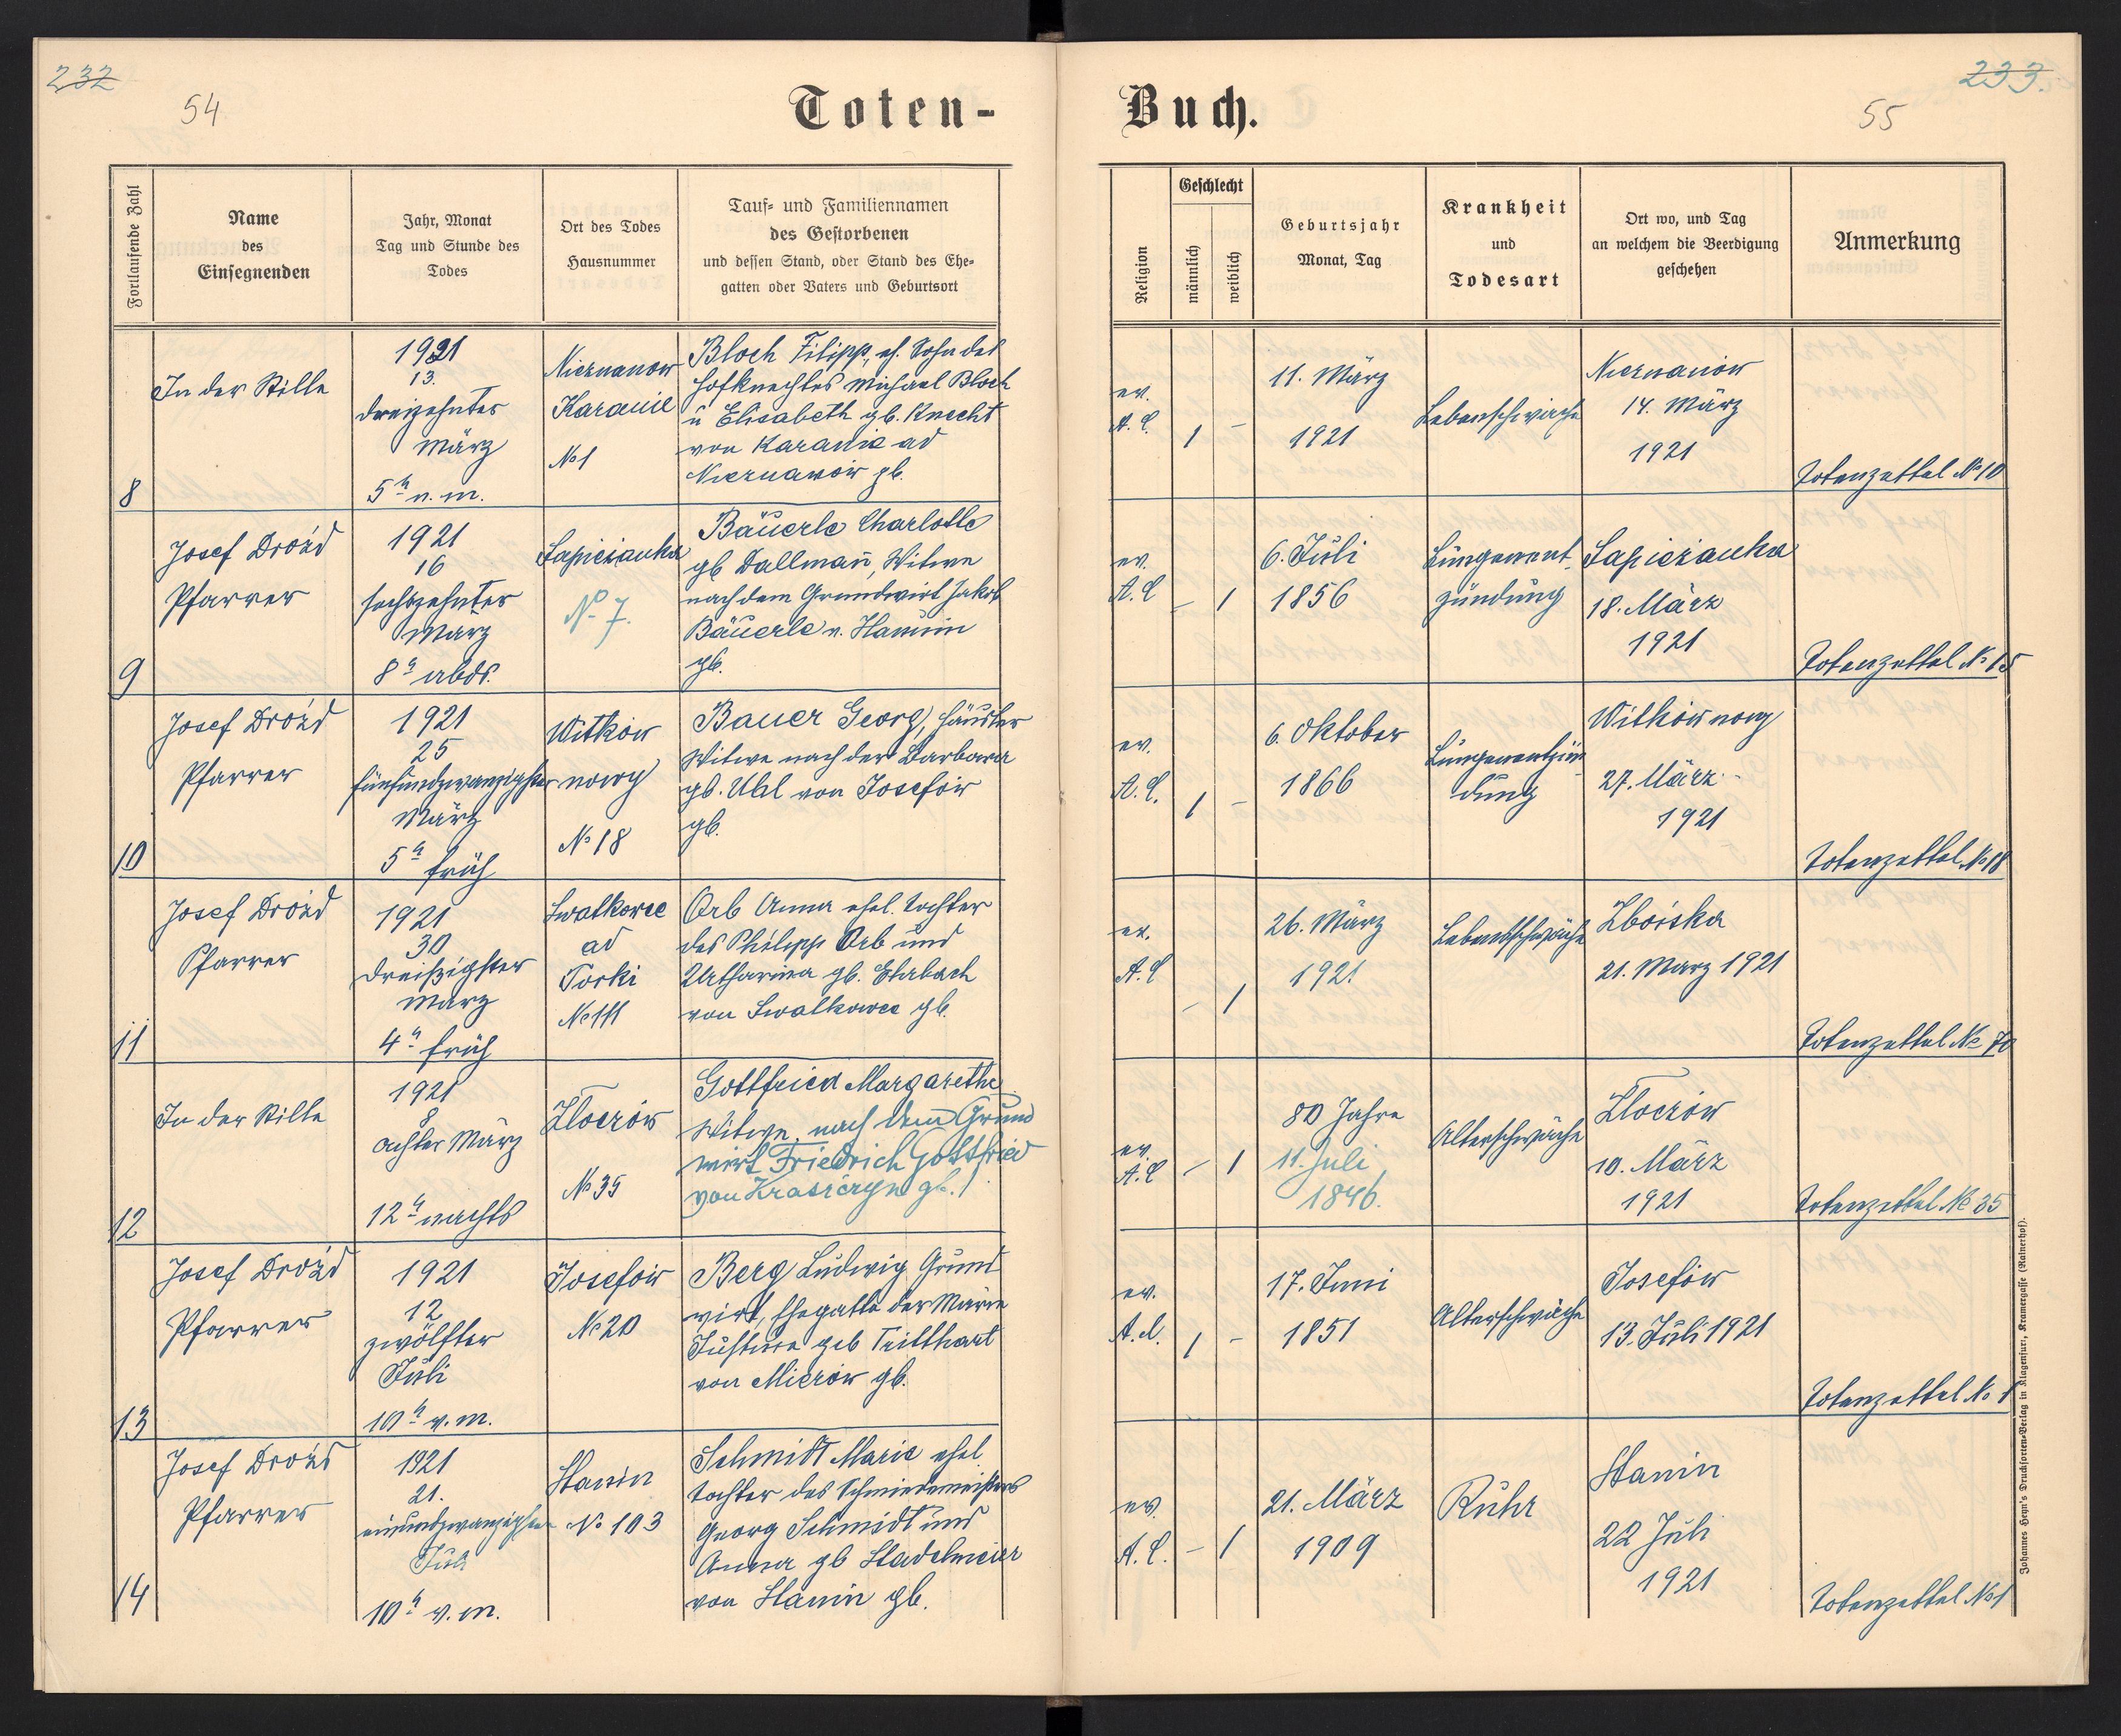 232
54
Toten-
Buch.
233.
55
Fortlaufende Zahl
Name
des
Einsegnenden
Jahr, Monat
Tag und Stunde des
Todes
Ort des Todes
Hausnummer
Tauf= und Familiennamen
des Gestorbenen
und dessen Stand, oder Stand des Ehe=
gatten oder Vaters und Geburtsort
Religion
Geschlecht
männlich
weiblich
Geburtsjahr
Monat, Tag
Krankheit
und
Todesart
Ort wo, und Tag
an welchem die Beerdigung
geschehen
Anmerkung
8
In der Stille
1921
13.
dreizehnter
März
5h n. m.
Nieznanow
Karanie
No 1
Bloch Filipp, eh. Sohn des
Hofknechtes Michael Bloch
u Elisabeth gb. Knecht
von Karanie ad
Nieznanów gb.
ev.
A. C.
1
-
11. März
1921
Lebensschwäche
Nieznanów
14. März
1921
Totenzettel No 10
9
Josef Drozd
Pfarrer
1921
16
sechszehnter
März
8h abds.
Sapieżanka
No 7.
Bäuerle Charlotte
gb Dallmañ, Witwe
nach dem Grundwirt Jakob
Bäuerle v. Hanunin
gb.
ev.
A. C
-
1
6. Juli
1856
Lungenent
zündung
Sapieżanka
18. März
1921
Totenzettel No 15
10
Josef Drozd
Pfarrer
1921
25
fünfundzwanzigster
März
5h früh
Witków
nowy
No 18
Bauer Georg, Häusler
Witwe nach der Barbara
gb. Uhl von Josefów
gb.
ev.
A. C.
1
-
6. Oktober
1866
Lungenentzün
dung
Witków nowy
27. März
1921
Totenzettel No 18
11
Josef Drozd
Pfarrer
1921
30
dreißigster
März
4h früh
Swalkowce
ad
Torki
No 111
Orb Anna ehel. Tochter
des Philipp Orb und
Katharina gb. Ehrbach
von Swalkowce gb.
ev.
A. C
-
1
26. März
1921.
Lebensschwäche
Zboiska
21. März 1921
Totenzettel No 70
12
In der Stille
1921
8
achter März
12h nachts
Złoczów
No 35
Gottfried Margarethe
Witwe, nach dem Grund
wirt Friedrich Gottfried
von Krasiczyn gb.
ev.
A. C
-
1
80 Jahre
11. Juli
1846.
Alterschwäche
Złoczów
10. März
1921
Totenzettel No 35
13
Josef Drozd
Pfarrer
1921
12
zwölfter
Juli
10h v. m.
Josefów
No 20
Berg Ludwig Grund
wirt, Ehegatte der Marie
Justine geb Trillhart
von Mierów gb.
ev.
A. C.
1
-
17. Juni
1851
Alterschwäche
Josefów
13. Juli 1921
Totenzettel No 1
14
Josef Drozd
Pfarrer
1921
21.
einundzwanzigster
Juli
10h v. m.
Stanin
No 103
Schmidt Marie ehel
Tochter des Schmiedemeisters
Georg Schmidt und
Anna gb Stadelmeier
von Stanin gb.
ev.
A. C.
-
1
21. März
1909
Ruhr
Stanin
22 Juli
1921
Totenzettel No 1
Johannes Heyn's Drucksorten=Verlag in Klagenfurt, Kramergasse (Rainerhof).